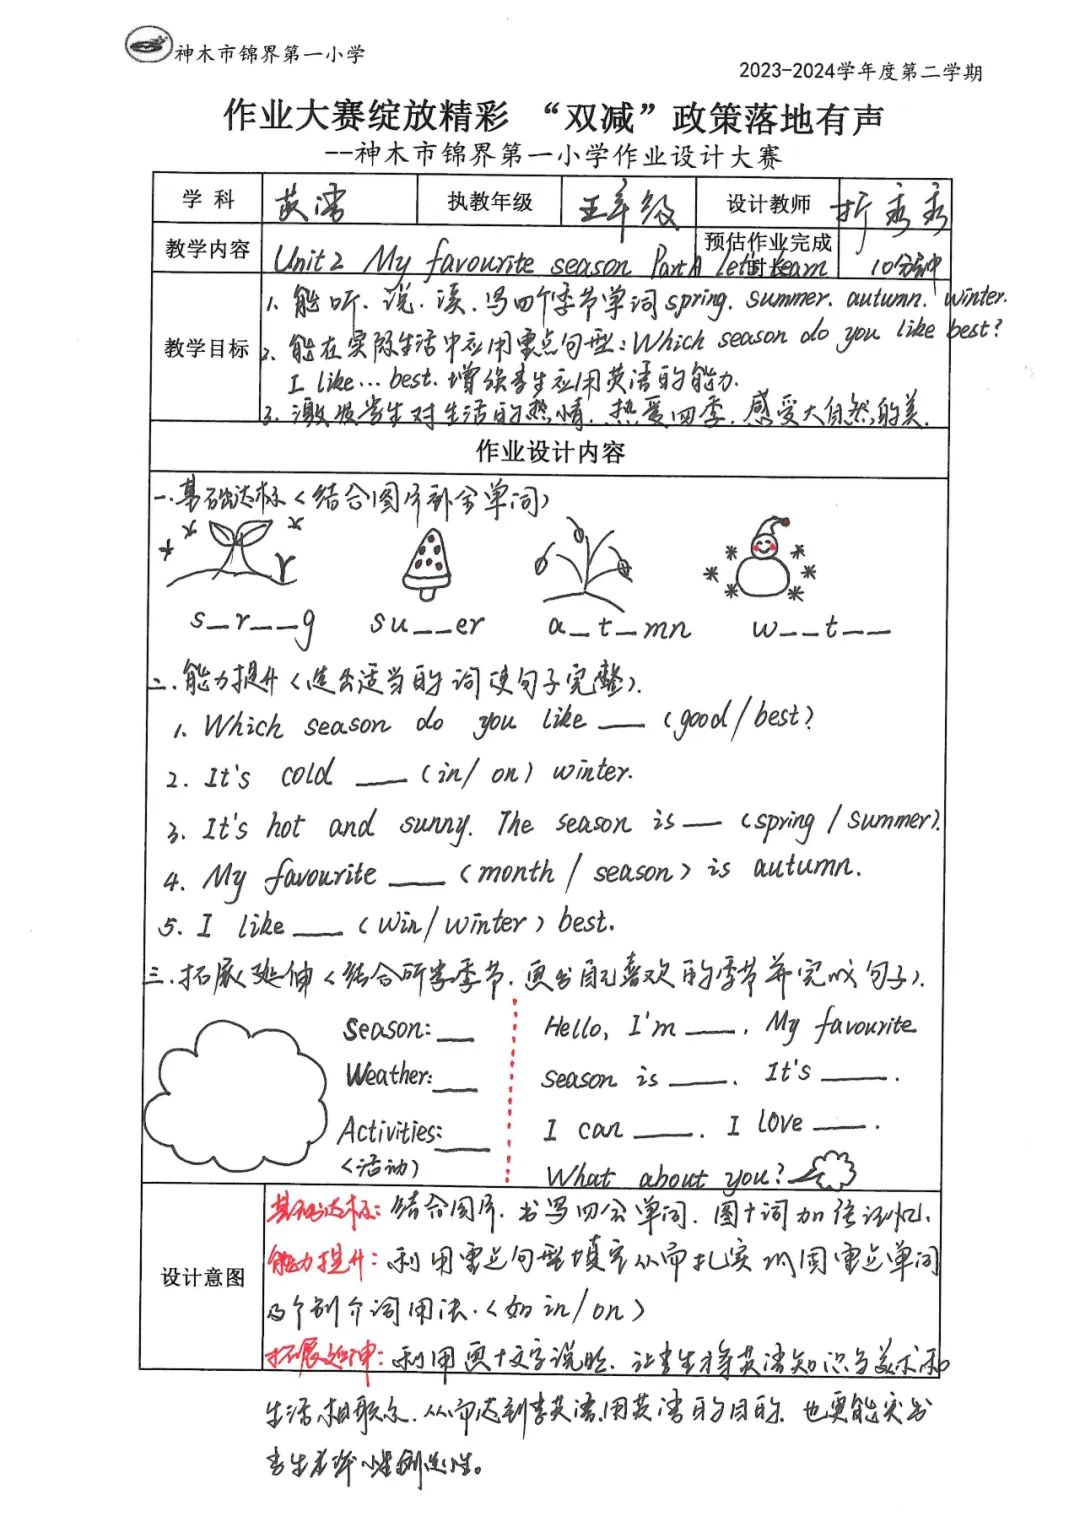 神木市锦界第一小学
2023-2024学年度第二学期
作业大赛绽放精彩 “双减”政策落地有声
--神木市锦界第一小学作业设计大赛
学科 英语 执教年级 五年级 设计教师 折秀秀
教学内容 Unit2 My favourite season PartA let's learn 预估作业完成时长 10分钟
教学目标
1. 能听、说、读、写四个季节单词spring. summer. autumn. winter.
2. 能在实际生活中应用重点句型:Which season do you like best?
I like... best. 增强学生应用英语的能力.
3. 激发学生对生活的热情,热爱四季,感受大自然的美.
作业设计内容
一.基础达标(结合图片补全单词)
s_r__g su__er a_t_mn w__t__
二.能力提升(选出适当的词使句子完整).
1. Which season do you like ___ (good/best?
2. It's cold ___ (in/ on) winter.
3. It's hot and sunny. The season is ___ (spring / summer).
4. My favourite ___ (month / season) is autumn.
5. I like ___ (win/winter) best.
三.拓展延伸(结合所学季节,画出自己喜欢的季节并完成句子).
Season: __
Weather: __
Activities: __
(活动)
Hello, I'm ___. My favourite
season is ___. It's ___.
I can ___. I love ___.
What about you?
设计意图
基础达标: 结合图片,书写四会单词,图+词加强记忆.
能力提升: 利用重点句型填空从而扎实巩固重点单词
及个别介词用法.(如in/on)
拓展延伸: 利用画+文字说脸,让学生将英语知识与美术和
生活相联系,从而达到学英语用英语的目的,也更能突出
学生创造性。